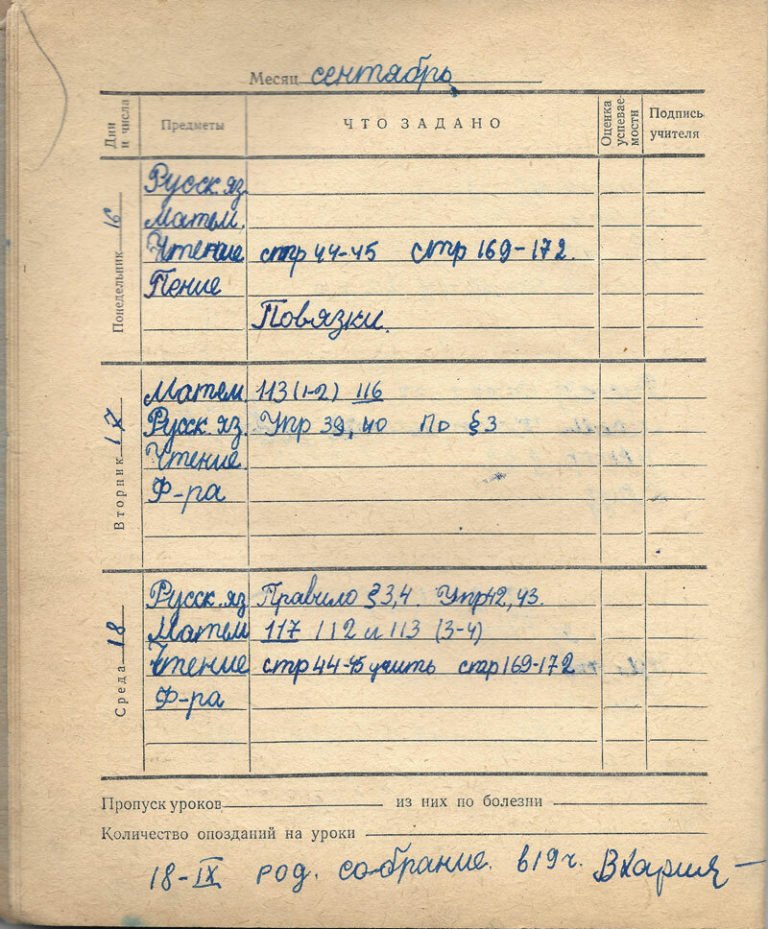 Месяц сентябрь
Дни и числа Предметы ЧТО ЗАДАНО Оценка успевае-мости Подпись учителя
Понедельник 16
Русск. яз.
Матем.
Чтение стр 44-45 стр 169-172.
Пение
Повязки.
Вторник 17
Матем 113 (1-2) 116
Русск. яз. Упр 39, 40 по § 3
Чтение
Ф-ра
Среда 18
Русск. яз Правило § 3,4. Упр 42, 43.
Матем 117 112 и 113 (3-4)
Чтение стр 44-45 учить стр 169-172
Ф-ра
Пропуск уроков из них по болезни
Количество опозданий на уроки
18-IX род. собрание. в 19 ч.